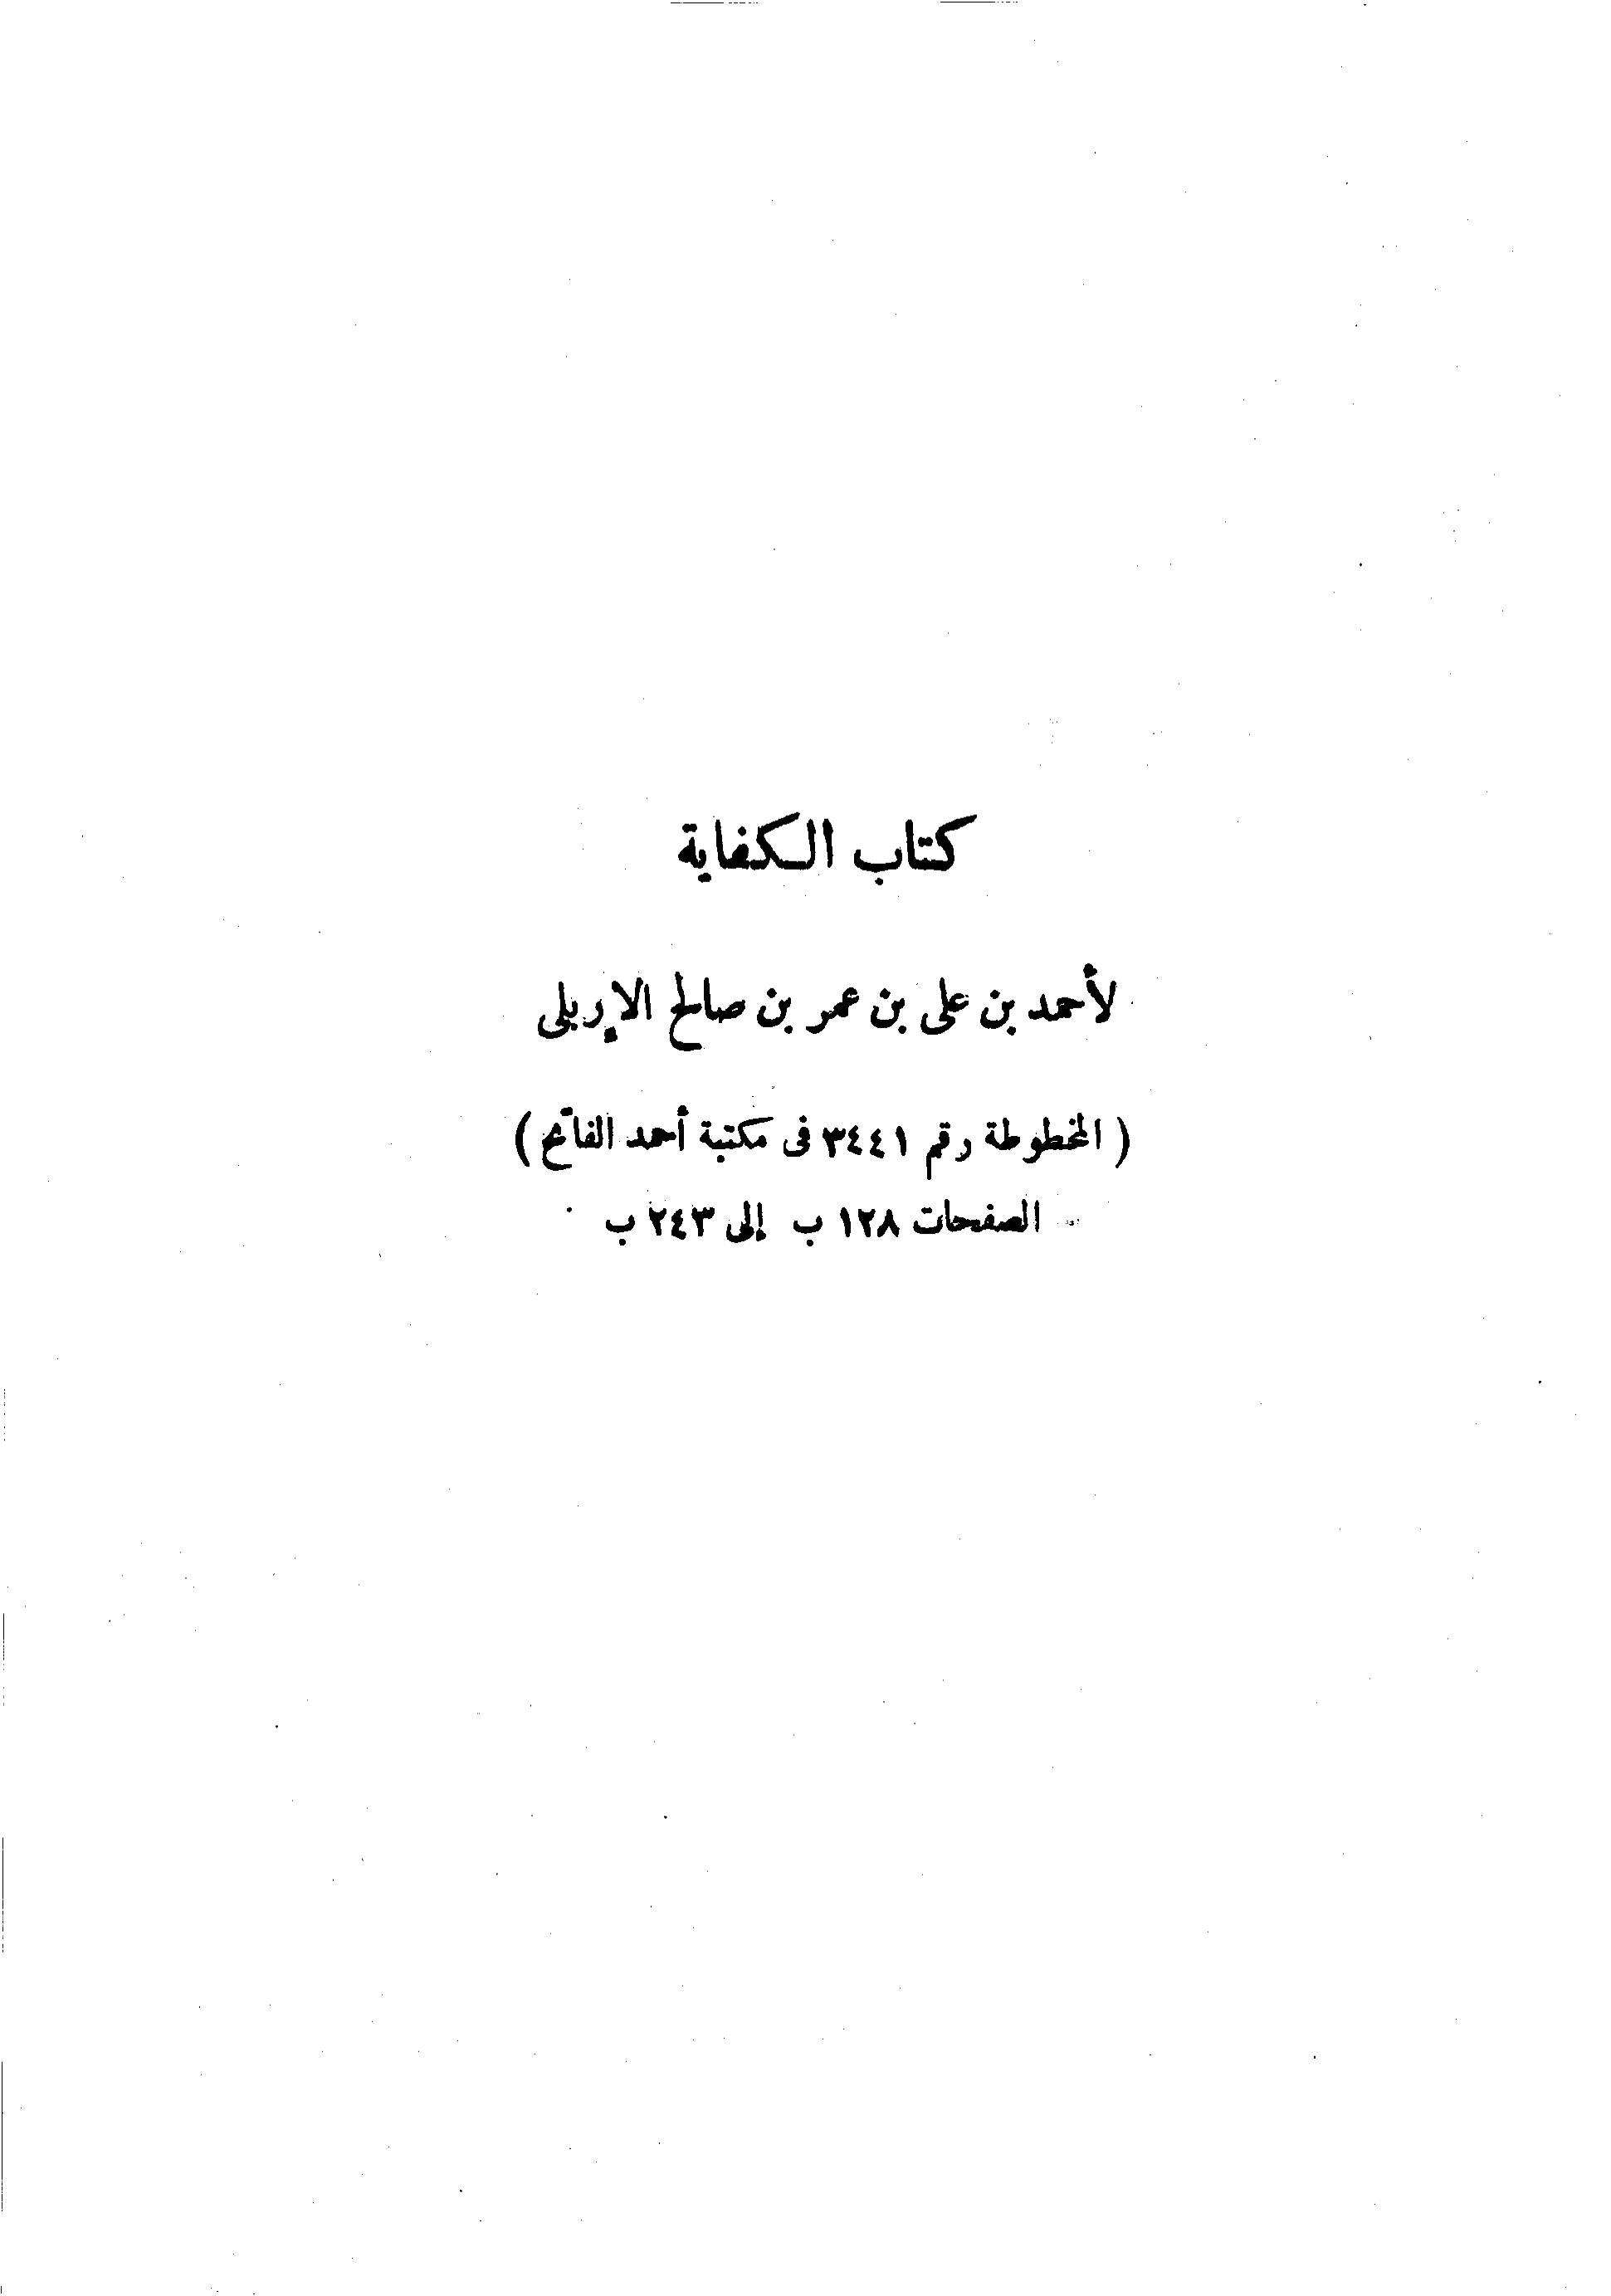 كتاب الكفاية
لأحمد بن على بن عمر بن صالح الإربلى
( المخطوطة رقم ٣٤٤١ فى مكتبة أحمد الفاتح )
الصفحات ١٢٨ ب إلى ٢٤٣ ب